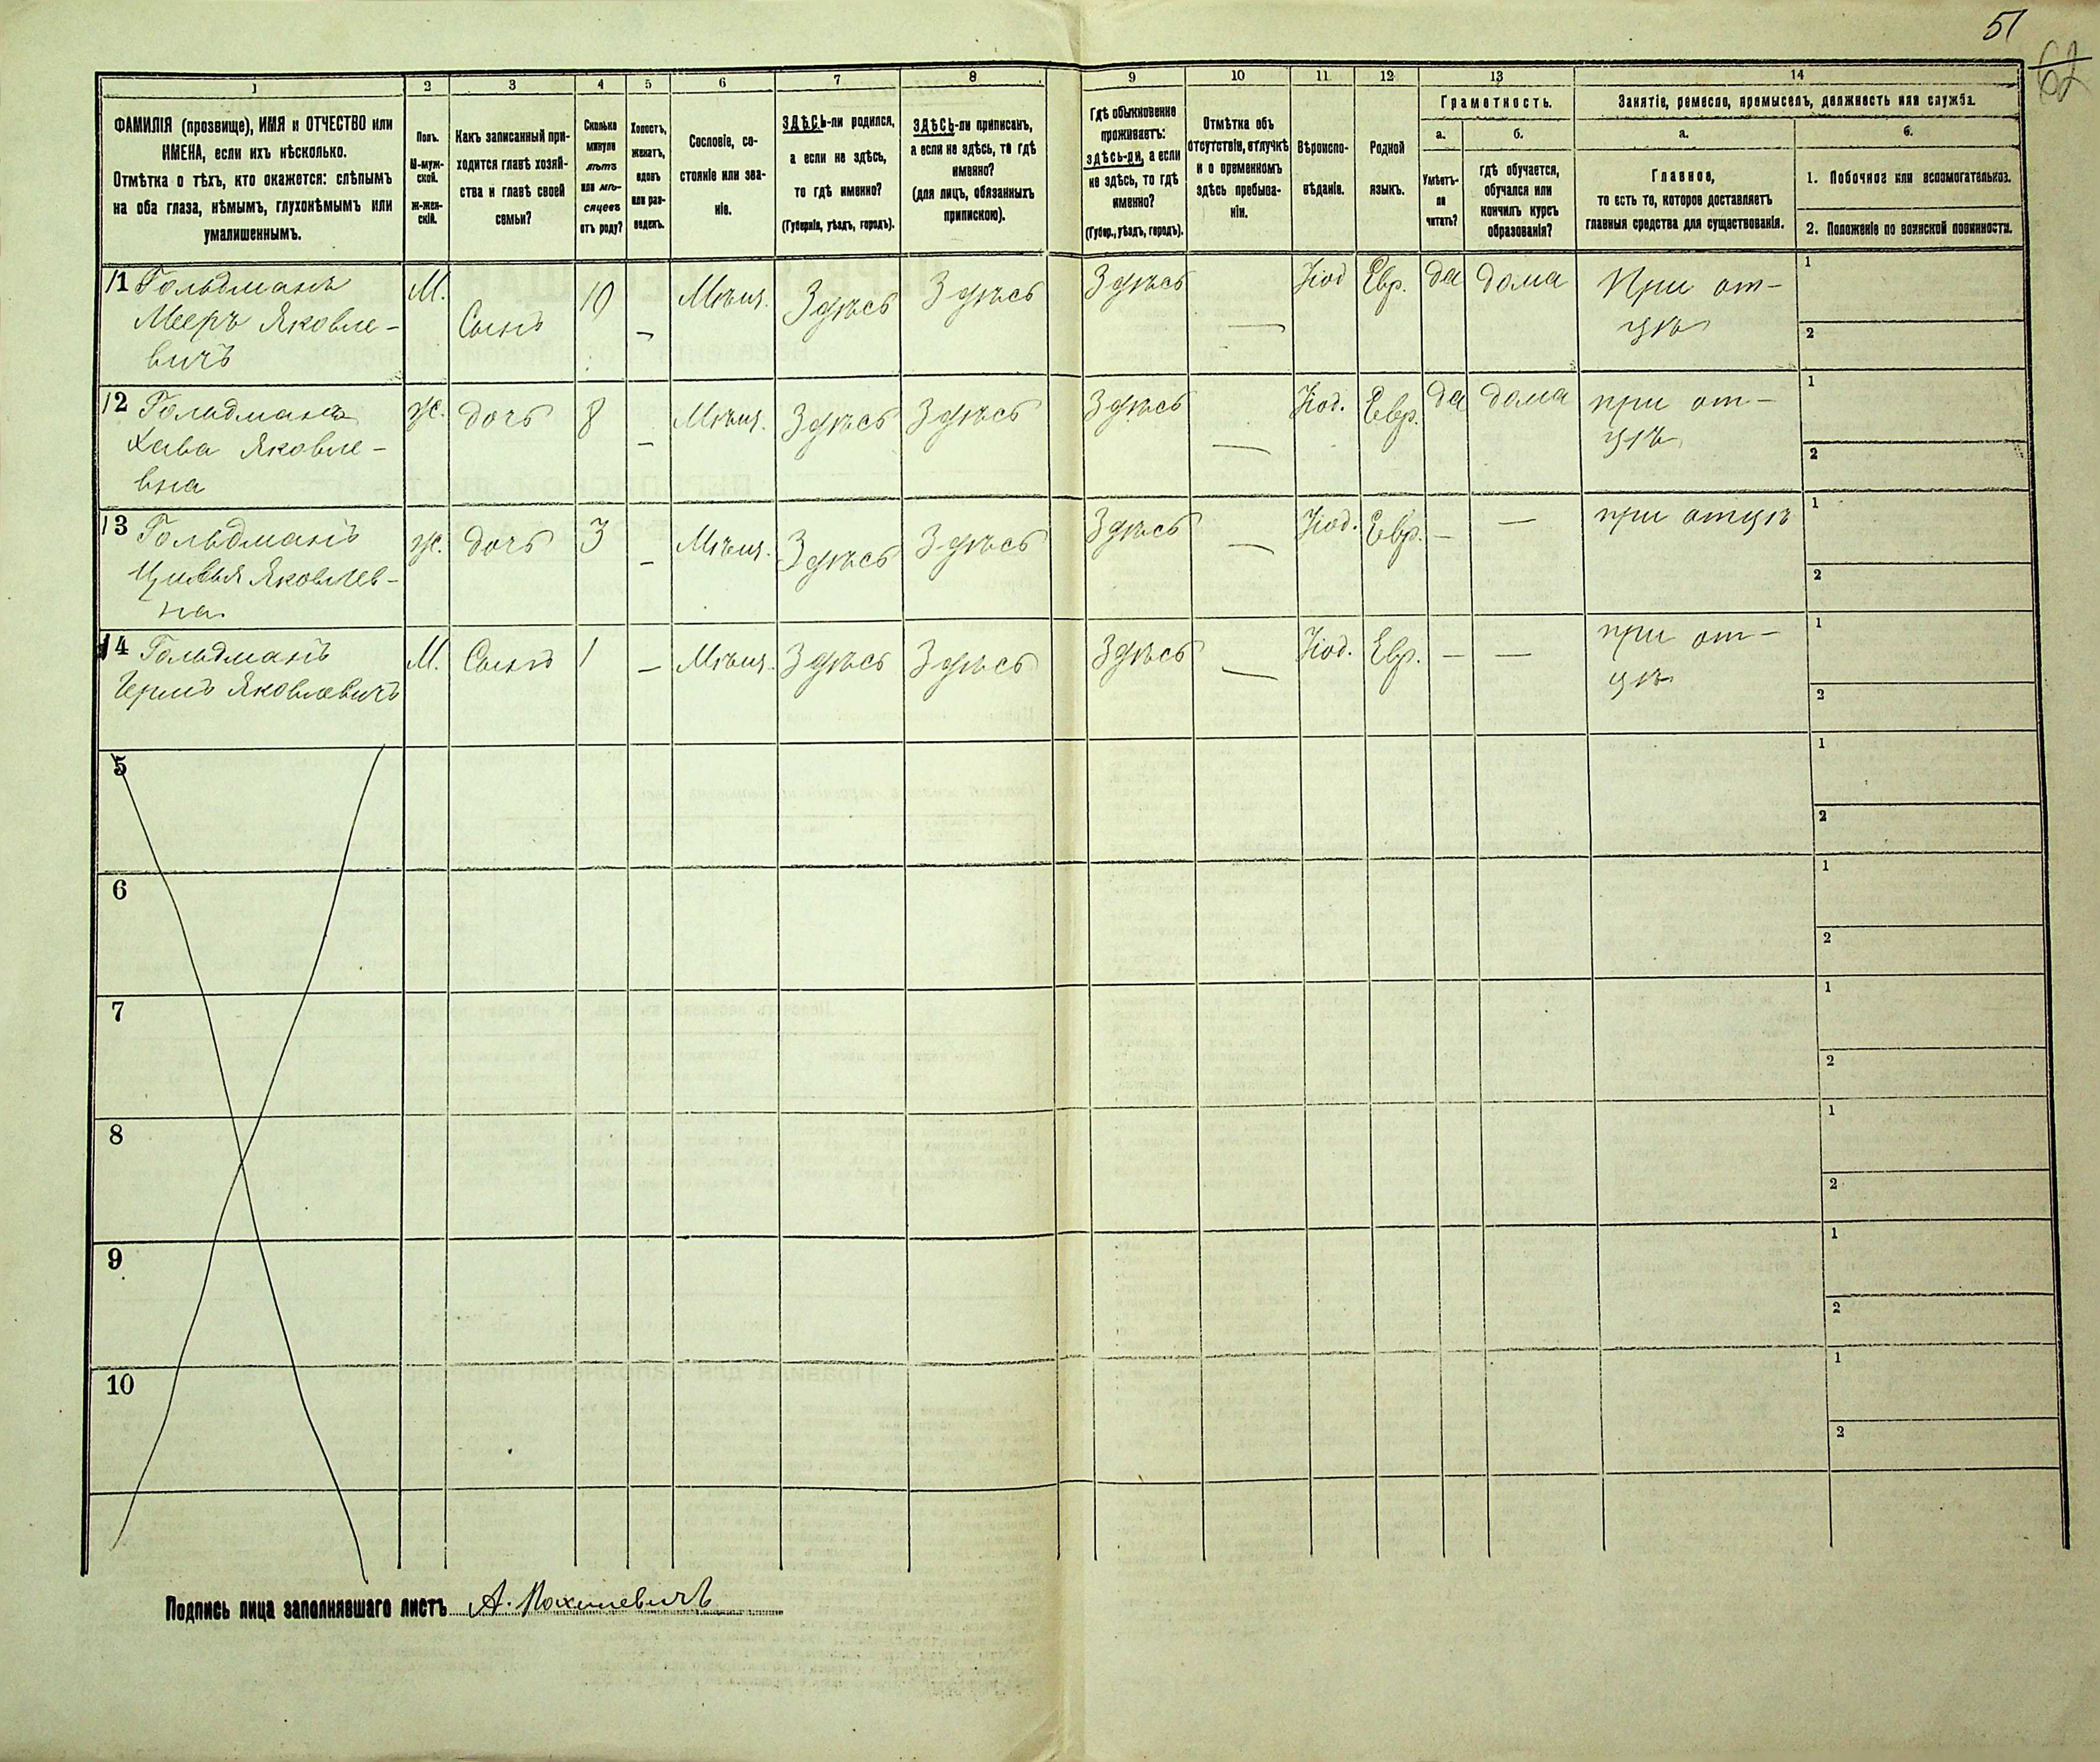 51
62
1 2 3 4 5 6 7 8 9 10 11 12 13 14
ФАМИЛІЯ (прозвище), ИМЯ и ОТЧЕСТВО или
ИМЕНА, если ихъ нѣсколько.
Отмѣтка о тѣхъ, кто окажется: слѣпымъ
на оба глаза, нѣмымъ, глухонѣмымъ или
умалишеннымъ.
Полъ.
М-муж-
ской.
Ж-жен-
скій.
Какъ записанный при-
ходится главѣ хозяй-
ства и главѣ своей
семьи?
Сколько
минуло
лѣтъ
или мѣ-
сяцевъ
отъ роду?
Холостъ,
женатъ,
вдовъ
или раз-
веденъ.
Сословіе, со-
стояніе или зва-
ніе.
ЗДѢСЬ-ли родился,
а если не здѣсь,
то гдѣ именно?
(Губернія, уѣздъ, городъ).
ЗДѢСЬ-ли приписанъ,
а если не здѣсь, то гдѣ
именно?
(для лицъ, обязанныхъ
припискою).
Гдѣ обыкновенно
проживаетъ:
здѣсь-ли, а если
не здѣсь, то гдѣ
именно?
(Губер., уѣздъ, городъ).
Отмѣтка объ
отсутствіи, отлучкѣ
и о временномъ
здѣсь пребыва-
ніи.
Вѣроиспо-
вѣданіе.
Родной
языкъ.
Грамотность.
а. б.
Умѣетъ-
ли
читать?
гдѣ обучается,
обучался или
кончилъ курсъ
образованія?
Занятіе, ремесло, промыселъ, должность или служба.
а. б.
Главное,
то есть то, которое доставляетъ
главныя средства для существованія.
1. Побочное или вспомогательное.
2. Положеніе по воинской повинности.
11 Гольдманъ М. Сынъ 10 – Мѣщ. Здѣсь Здѣсь Здѣсь — Іюд Евр. да дома При от- 1
Мееръ Яковле- цѣ 2
вичъ
12 Гольдманъ Ж. дочь 8 – Мѣщ. Здѣсь Здѣсь Здѣсь — Іюд. Евр. да дома при от- 1
Хава Яковле- цѣ 2
вна
13 Гольдманъ Ж. дочь 3 – Мѣщ. Здѣсь Здѣсь Здѣсь — Іюд. Евр. – — при отцѣ 1
Цивья Яковлев- 2
на
14 Гольдманъ М. Сынъ 1 – Мѣщ. Здѣсь Здѣсь Здѣсь — Іюд. Евр. – — при от- 1
Яковлевичъ цѣ 2
5 1
2
6 1
2
7 1
2
8 1
2
9 1
2
10 1
2
Подпись лица заполнявшаго листъ А.